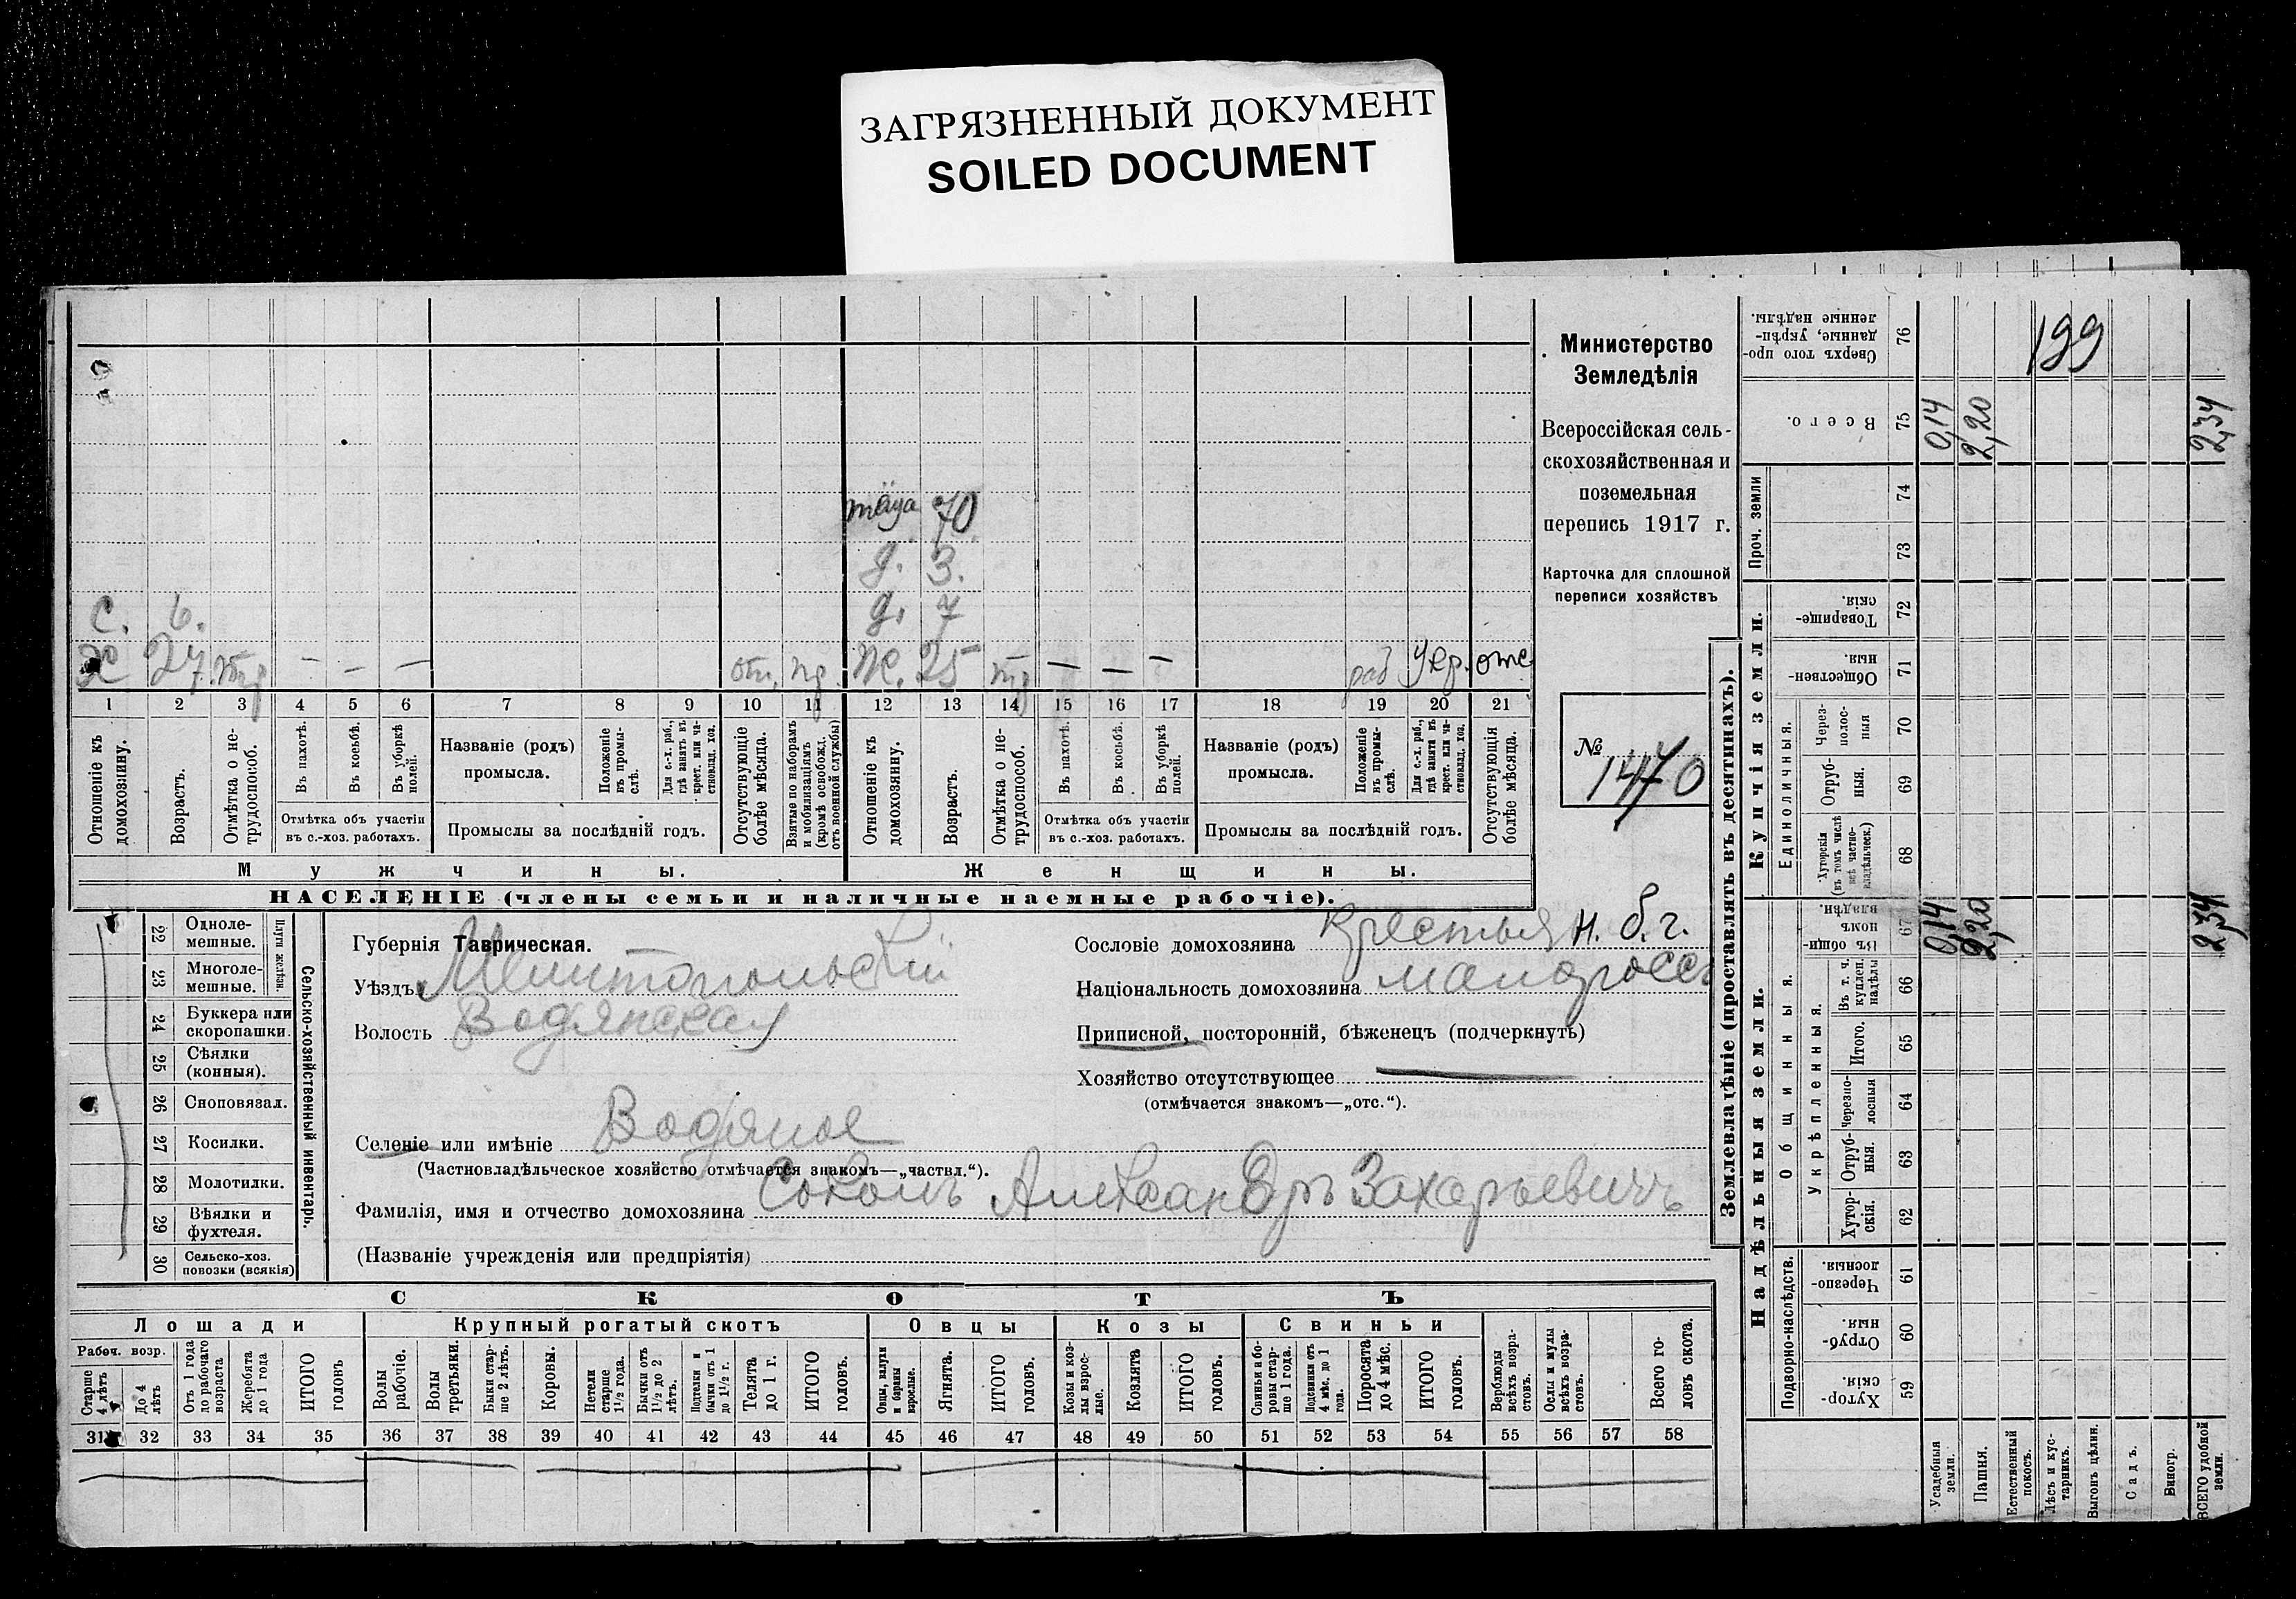 ЗАГРЯЗНЕННЫЙ ДОКУМЕНТ
SOILED DOCUMENT
тёща 70
д. 3.
с. 6. д. 7
27 отп. Ж. 25 раб отс
1 2 3 4 5 6 7 8 9 10 11 12 13 14 15 16 17 18 19 20 21
Отношеніе къ домохозяину.
Возрастъ.
Отмѣтка о не-трудоспособ.
Въ пахотѣ.
Въ косьбѣ.
Въ уборкѣ полей.
Отмѣтка объ участіи
въ с.-хоз. работахъ.
Названіе (родъ)
промысла.
Положеніе въ промы-слѣ.
Для с.-х. раб., гдѣ занятъ въ крест. или ча-стновлад. хоз.
Промыслы за послѣдній годъ.
Отсутствующіе болѣе мѣсяца.
Взятые по наборамъ и мобилизаціямъ (кромѣ освобожд. отъ военной службы)
Отношеніе къ домохозяину.
Возрастъ.
Отмѣтка о не-трудоспособ.
Въ пахотѣ.
Въ косьбѣ.
Въ уборкѣ полей.
Отмѣтка объ участіи
въ с.-хоз. работахъ.
Названіе (родъ)
промысла.
Положеніе въ промы-слѣ.
Для с.-х. раб., гдѣ занята въ крест. или ча-стновлад. хоз.
Промыслы за послѣдній годъ.
Отсутствующія болѣе мѣсяца.
Мужчины. Женщины.
НАСЕЛЕНІЕ (члены семьи и наличные наемные рабочіе).
Министерство
Земледѣлія
Всероссійская сель-
скохозяйственная и
поземельная
перепись 1917 г.
Карточка для сплошной
переписи хозяйствъ
№ 1470
22 Одноле-мешные.
23 Многоле-мешные.
Плуги желѣзн.
24 Буккера или скоропашки.
25 Сѣялки (конныя).
26 Сноповязал.
27 Косилки.
28 Молотилки.
29 Вѣялки и фухтеля.
30 Сельско-хоз. повозки (всякія)
Сельско-хозяйственный инвентарь.
Губернія Таврическая.
Уѣздъ Мелитопольскій
Волость Водянская
Селеніе или имѣніе Водяное
(Частновладѣльческое хозяйство отмѣчается знакомъ—„частвл.“).
Фамилія, имя и отчество домохозяина Соколъ Александръ Захарьевичъ
(Названіе учрежденія или предпріятія)
Сословіе домохозяина Крестьян н. б. г.
Національность домохозяина малороссъ
Приписной, посторонній, бѣженецъ (подчеркнуть)
Хозяйство отсутствующее
(отмѣчается знакомъ—„отс.“).
СКОТЪ
Лошади Крупный рогатый скотъ Овцы Козы Свиньи
Рабоч. возр.
Старше 4 лѣтъ
До 4 лѣтъ
Отъ 1 года до рабочаго возраста
Жеребята до 1 года
ИТОГО головъ
Волы рабочіе.
Волы третьяки.
Быки стар-ше 2 лѣтъ.
Коровы.
Нетели старше 1½ года.
Бычки отъ 1½ до 2 лѣтъ.
Подтелки и бычки отъ 1 до 1½ г.
Телята до 1 г.
ИТОГО головъ.
Овцы, валухи и бараны взрослые.
Ягнята.
ИТОГО головъ.
Козы и коз-лы взрос-лые.
Козлята
ИТОГО головъ.
Свиньи и бо-ровы стар-ше 1 года.
Подсвинки отъ 4 мѣс. до 1 года.
Поросята до 4 мѣс.
ИТОГО головъ.
Верблюды всѣхъ возра-стовъ.
Ослы и мулы всѣхъ возра-стовъ.
Всего го-ловъ скота.
31 32 33 34 35 36 37 38 39 40 41 42 43 44 45 46 47 48 49 50 51 52 53 54 55 56 57 58
Землевладѣніе (проставлять въ десятинахъ).
Надѣльныя земли. Купчія земли.
Проч. земли
Подворно-наслѣдств.
Общинныя.
Укрѣпленныя.
Единоличныя.
Сверхъ того про-данные, укрѣп-ленные надѣлы. 76 199
Всего. 75 0,14 2,20 2,34
74
73
Товарище-скія. 72
Обществен-ныя 71
Через-полос-ныя 70
Отруб-ныя. 69
Хуторскія (въ томъ числѣ всѣ частно-владѣльческ.) 68
Въ общин-номъ владѣн. 67 0,14 2,20 2,34
Въ т. ч. куплен. надѣлы 66
Итого. 65
Черезпо-лосныя 64
Отруб-ныя. 63
Хутор-скія. 62
Черезпо-лосныя. 61
Отруб-ныя. 60
Хутор-скія. 59
Усадебныя земли.
Пашня.
Естественный покосъ.
Лѣсъ и кус-тарникъ.
Выгонъ цѣлин.
Садъ.
Виногр.
ВСЕГО удобной земли.